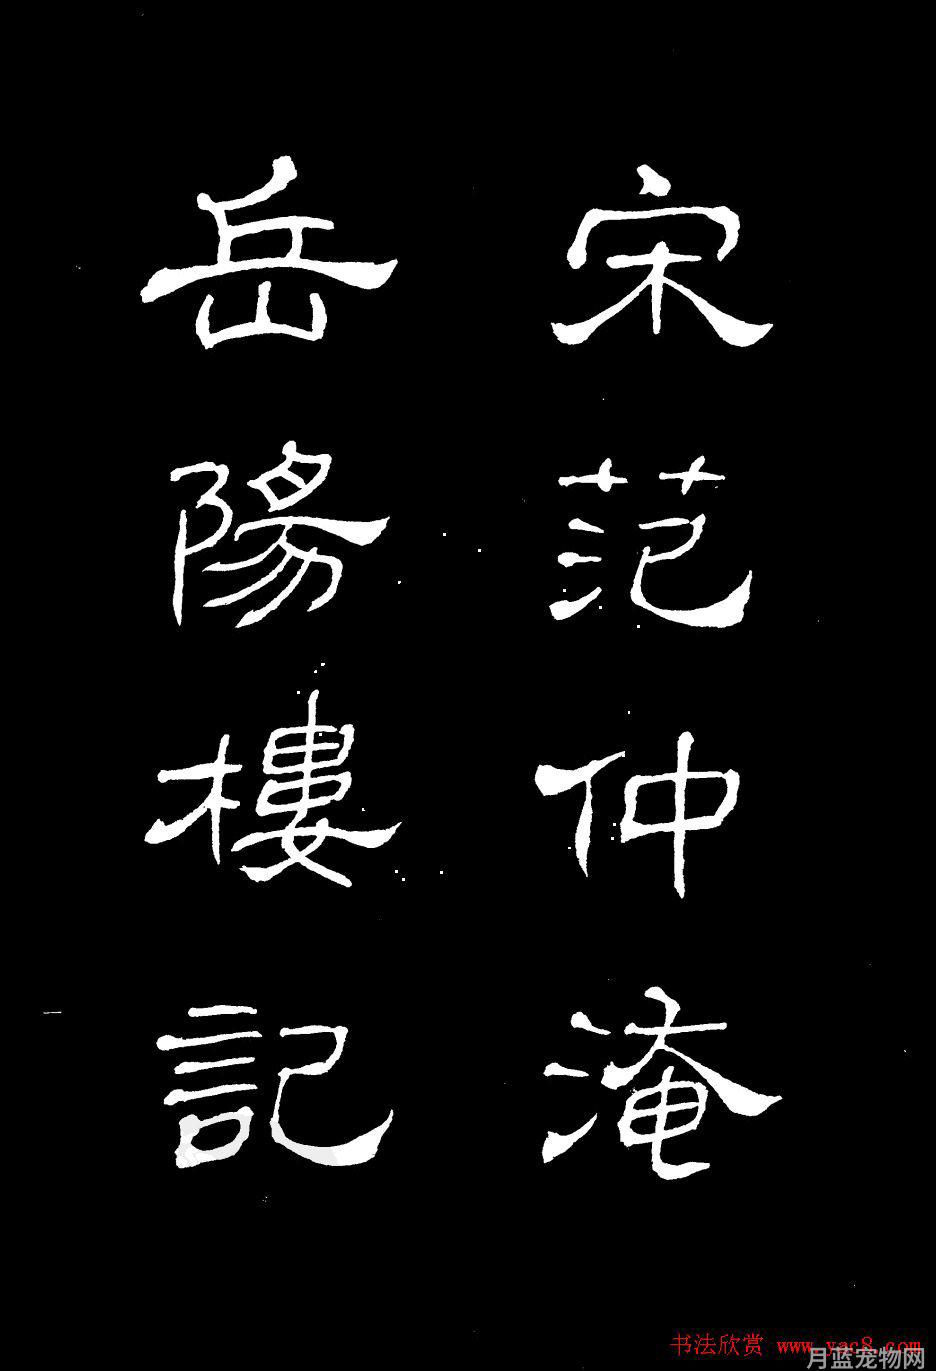 宋范仲淹
岳陽樓記
书法欣赏 www.yac8.com
月蓝宠物网